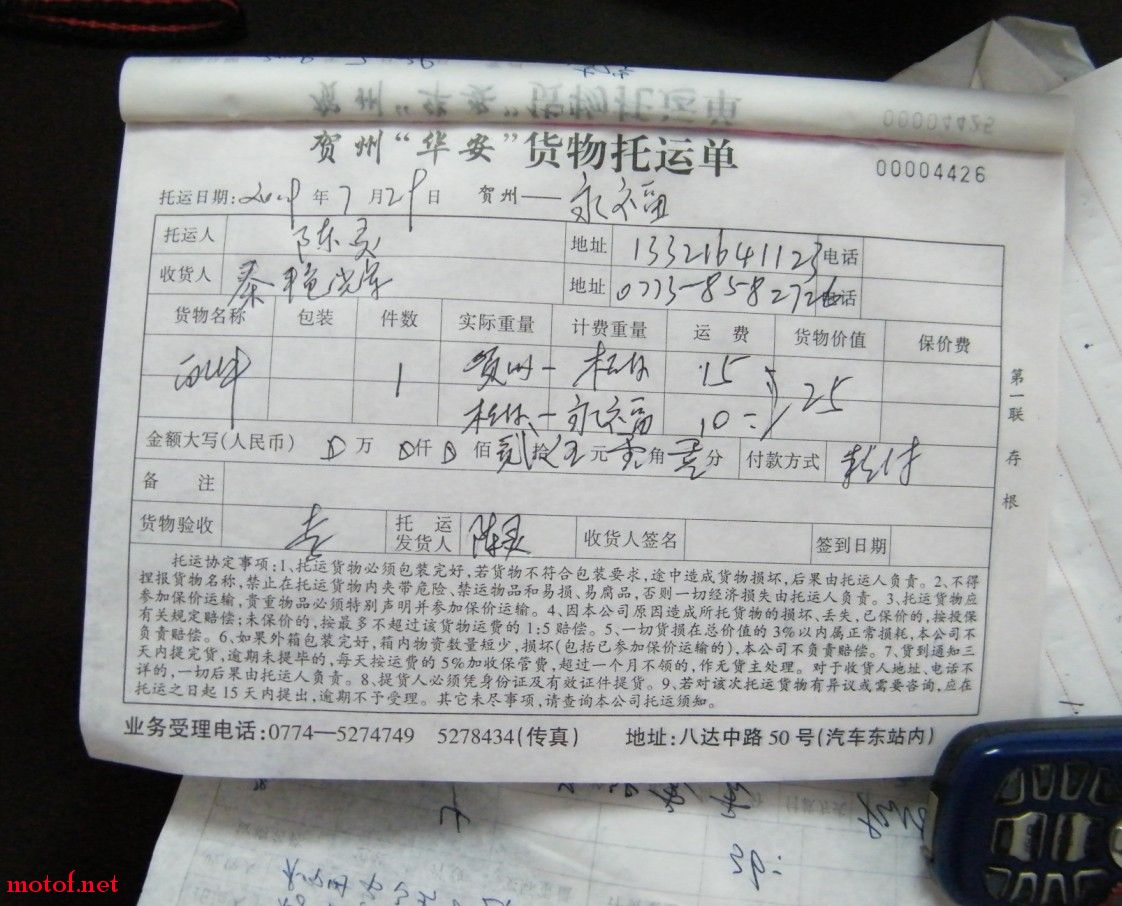 贺州“华安”货物托运单
00004425
00004426
托运日期: 年 7 月 29 日 贺州—— 永福
托运人 陈灵 地址 13321641123 电话
收货人 秦艳 地址 0773-8582726 电话
货物名称 包装 件数 实际重量 计费重量 运费 货物价值 保价费
1 贺州 - 桂林 15 25
桂林 - 永福 10
金额大写(人民币) 0 万 0 仟 0 佰 贰 拾 五 元 零 角 零 分 付款方式
备注
货物验收 托运发货人 陈灵 收货人签名 签到日期
第一联 存根
托运协定事项:1、托运货物必须包装完好,若货物不符合包装要求,途中造成货物损坏,后果由托运人负责。2、不得
捏报货物名称,禁止在托运货物内夹带危险、禁运物品和易损、易腐品,否则一切经济损失由托运人负责。3、托运货物应
参加保价运输,贵重物品必须特别声明并参加保价运输。4、因本公司原因造成所托货物的损坏、丢失,已保价的,按投保
有关规定赔偿;未保价的,按最多不超过该货物运费的1:5赔偿。5、一切货损在总价值的3%以内属正常损耗,本公司不
负责赔偿。6、如果外箱包装完好,箱内物资数量短少,损坏(包括已参加保价运输的),本公司不负责赔偿。7、货到通知三
天内提完货,逾期未提毕的,每天按运费的5%加收保管费,超过一个月不领的,作无货主处理。对于收货人地址,电话不
详的,一切后果由托运人负责。8、提货人必须凭身份证及有效证件提货。9、若对该次托运货物有异议或需要咨询,应在
托运之日起15天内提出,逾期不于受理。其它未尽事项,请查询本公司托运须知。
业务受理电话:0774—5274749 5278434(传真) 地址:八达中路50号(汽车东站内)
motof.net